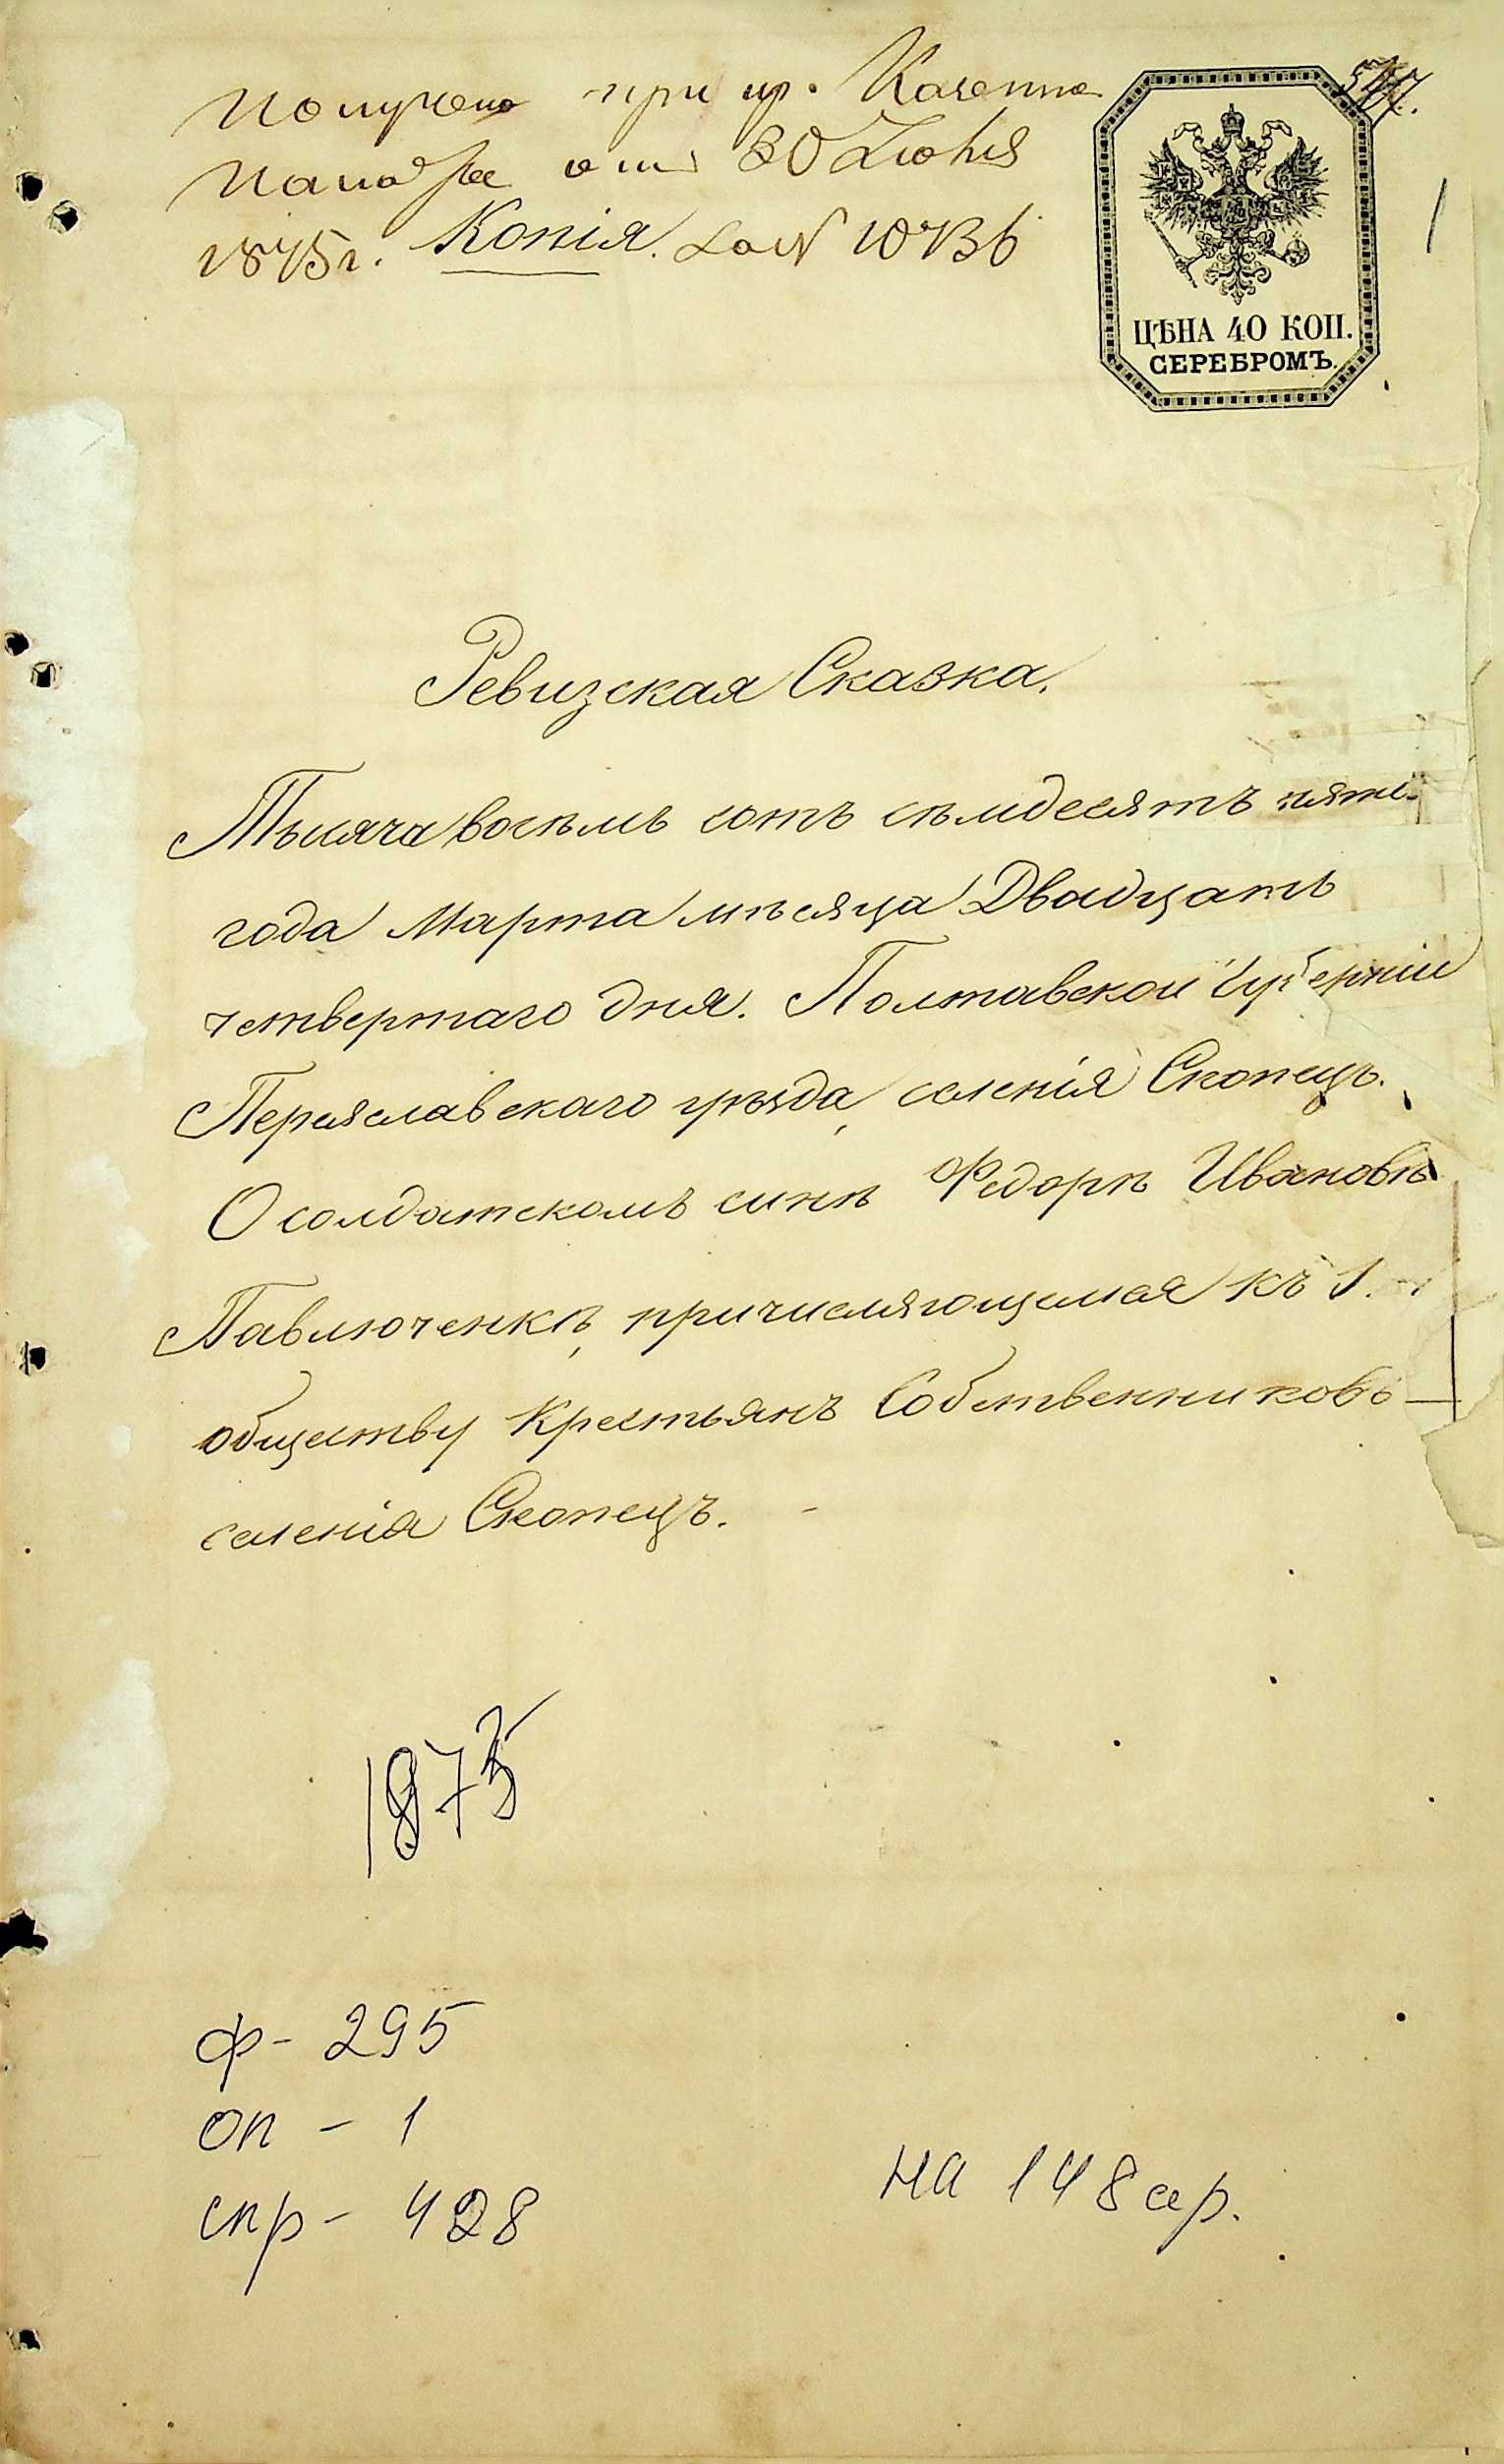 Получено при ук. Казенной
Палаты отъ 30 Іюня
1875 г. Копія. за N 10736
1
ЦѢНА 40 КОП.
СЕРЕБРОМЪ.
Ревизская Сказка.
Тысяча восемь сотъ семдесятъ пята
года Марта мѣсяца Двадцать
четвертаго дня. Полтавской Губерніи
Переяславскаго уѣзда, селенія Скопецъ.
О солдатскомъ синѣ Федорѣ Ивановѣ
Павлюченкѣ, причисляющемся къ 1.
обществу Крестьянъ Собственниковъ —
селенія Скопецъ. -
1875
ф- 295
оп - 1
спр- 428
на 148 ар.